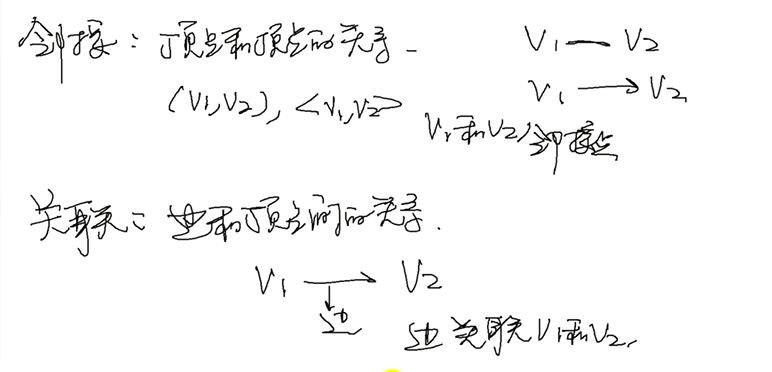 邻接：顶点和顶点的关系.
V1 — V2
(V1,V2), <V1,V2>
V1 → V2
V1和V2,邻接点
关联：边和顶点间的关系.
V1 → V2
边
边关联V1和V2,